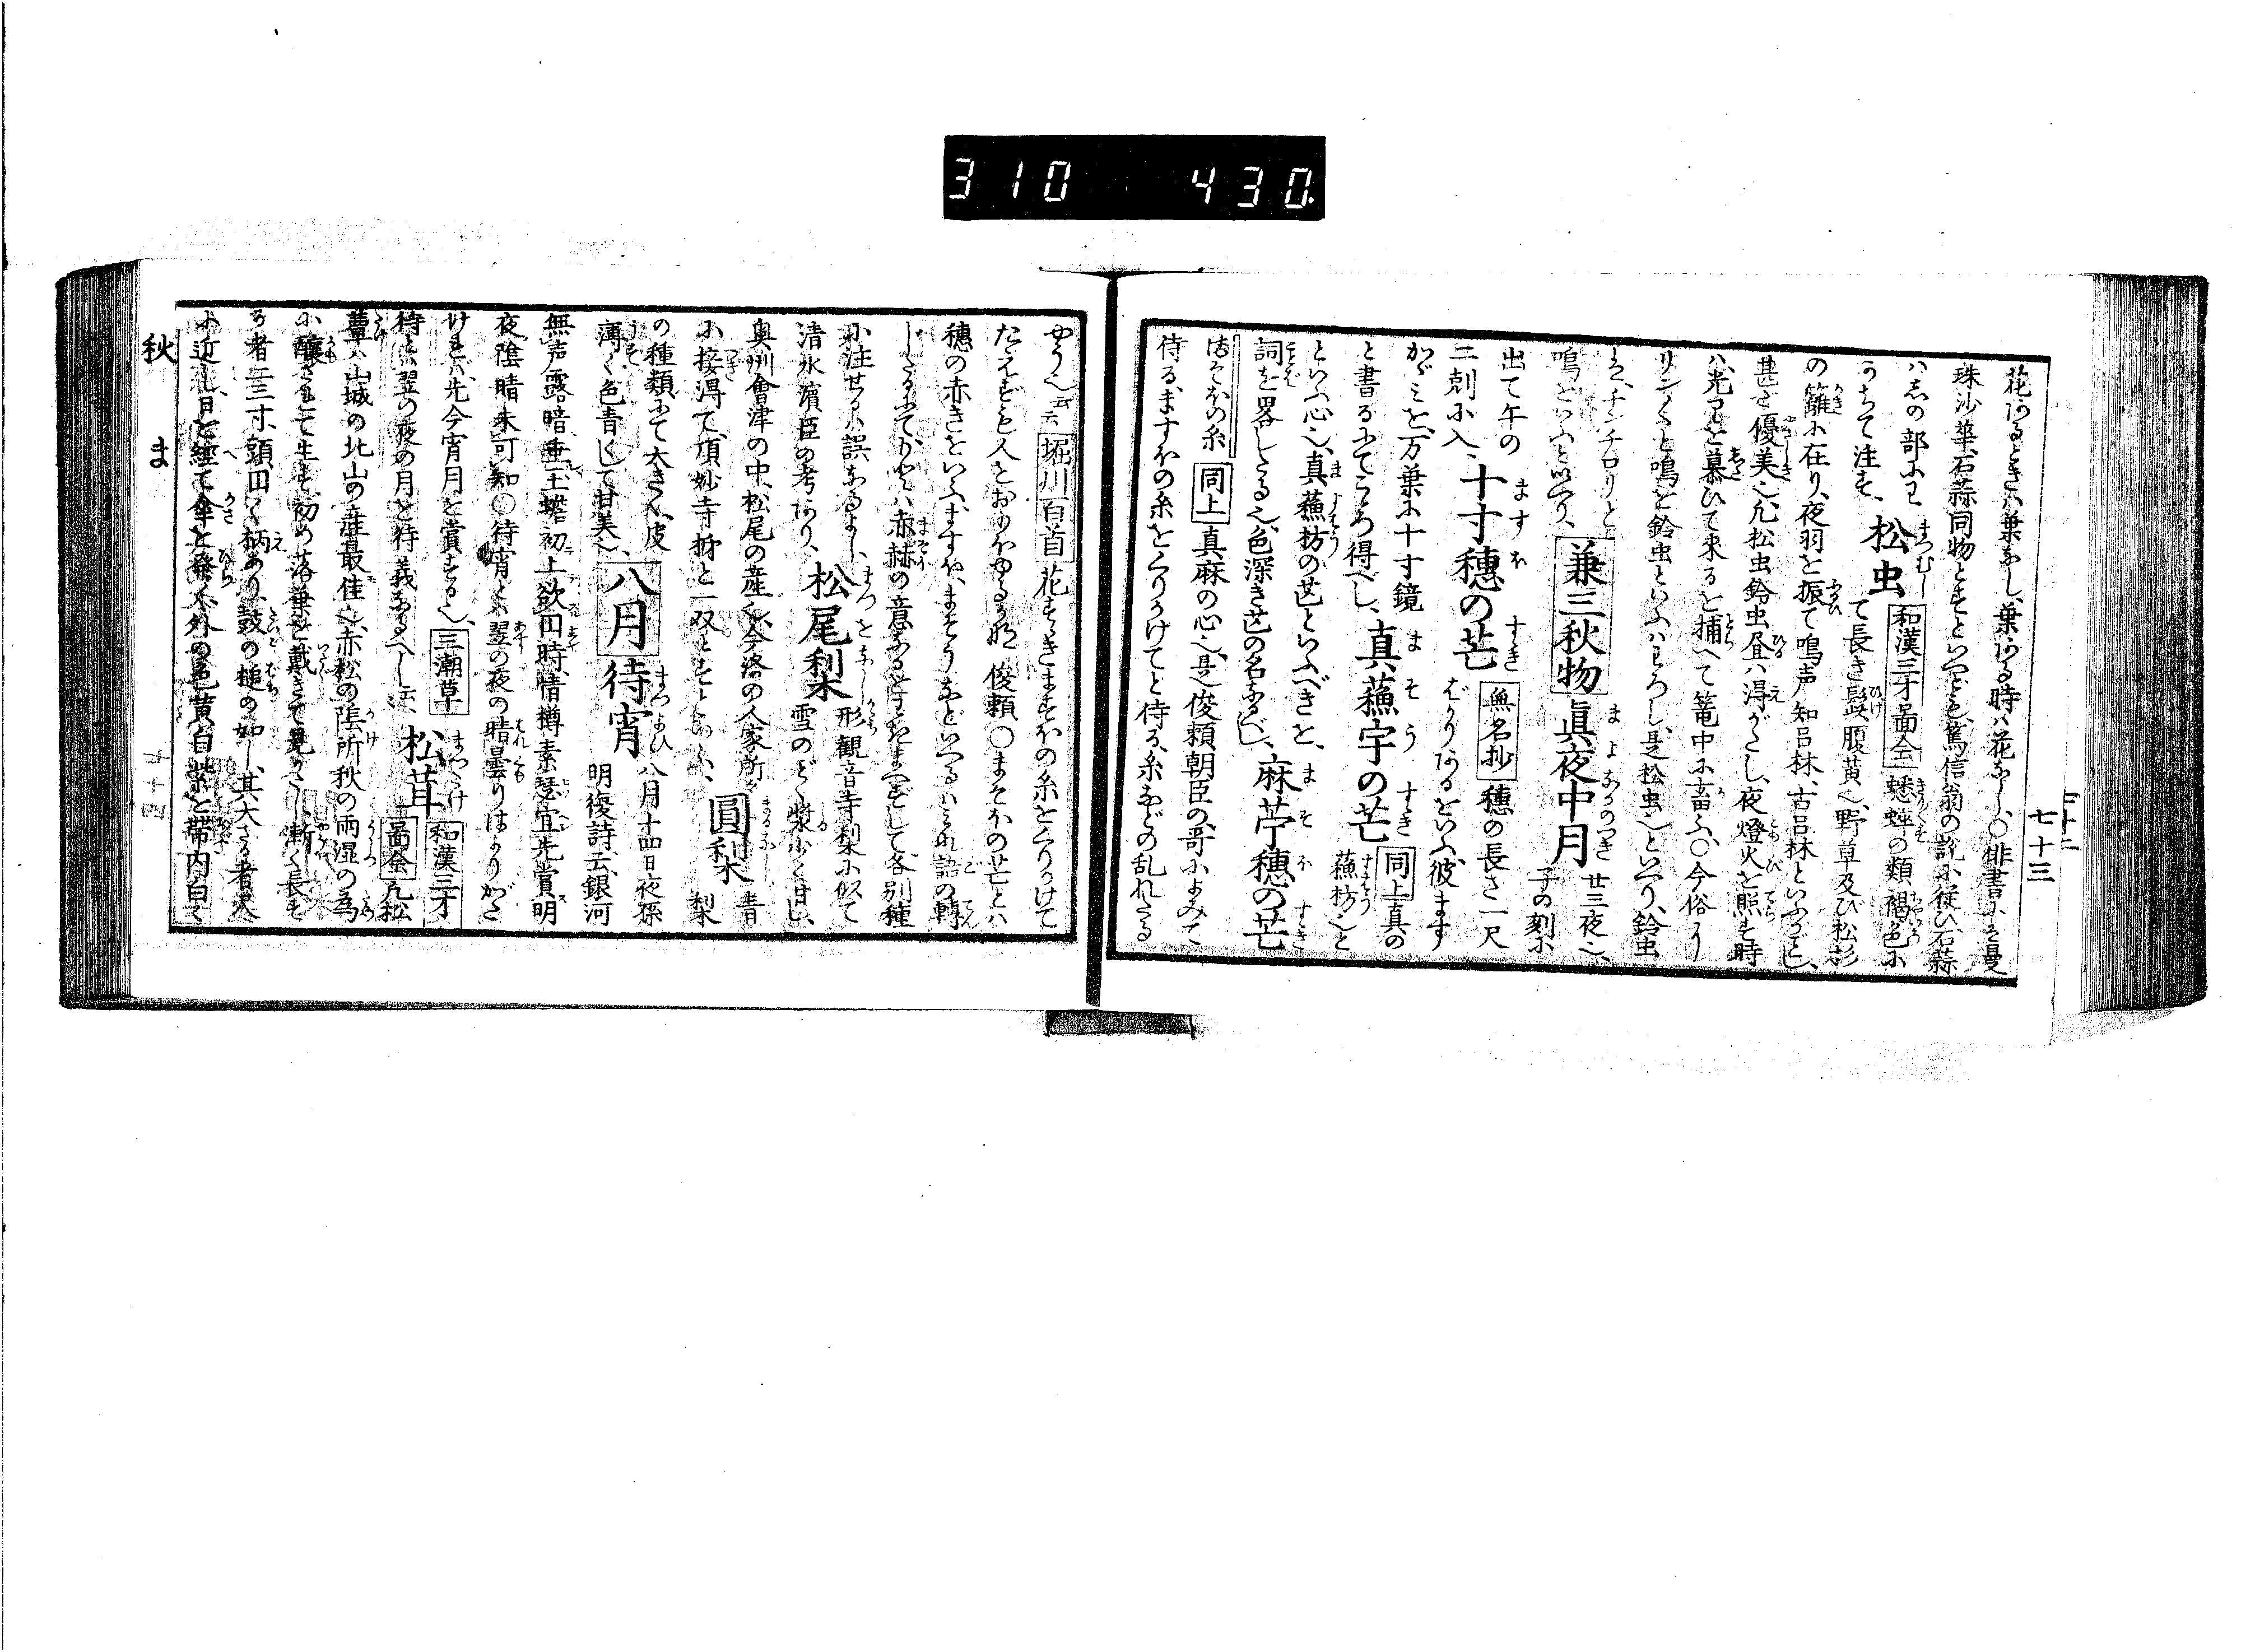 310 430
七十三
花あるときハ葉なし、葉ある時ハ花なし、○俳書に曼
珠沙華、石蒜同物とすといへども、篤信翁の説に従ひ、石蒜
ハしの部に
わかちて注す、
松虫
まつむし
和漢三才圖会
蟋蟀の類褐色に
て長き髭腹黄也、野草及ひ松杉
の籬に在り、夜羽を振て鳴声知呂林、古呂林といふがごとし、
甚だ優美也、凡松虫鈴虫昼ハ得がたし、夜燈火を照す時
ハ、光りを慕ひて来るを捕へて篭中に畜ふ、○今俗
リンリンと鳴を鈴虫といふハわろし、是松虫也といへり、鈴虫
チンチロリと
鳴といふと以へり、
兼三秋物
眞夜中月
まよなかのつき
廿三夜也、
子の刻に
出て午の
二剋に入、
十寸穂の芒
ますほ すすき
無名抄
穂の長さ一尺
ばかりあるをいふ、彼ます
かゞミを、万葉に十寸鏡
と書るにてこころ得べし、
真蘓宇の芒
まそう すすき
同上
真の
蘓枋也と
といふ心也、真蘓枋の芒といふべきを、
詞を畧したる也、色深き芒の名なるべし、
麻苧穂の芒
まそほ すすき
まそほの糸
同上
真麻の心也、是俊頼朝臣の哥によみて
侍る、ますほの糸をくりかけてと侍る、糸などの乱れたる
やう也云云
堀川百首
花すゝきますほの糸をくりかけて
たえずも人をおもほゆるかな 俊頼○まそほの芒とハ
穂の赤きをいふ、ますほ、まそうなどいへるハミな語の轉
したるにてかハ赤赫の意なるを、各別種
に注せるハ誤なるよし、
清水濱臣の考あり、
松尾梨
まつをなし
形観音寺梨に似て
雪のごとく漿少く甘し、
奥州會津の中、松尾の産也、今洛の人家所々
に接得て、頂妙寺柳と一双とすといへり、
圓梨
まるなし
青
梨
の種類にて大きく、皮
薄く色青くして甘美也、
八月
待宵
まつよひ
八月十四日夜孫
明復詩云、銀河
無声露暗垂、玉蟾初上欲円時、情樽素瑟宜先賞、明
夜陰晴未可知○待宵とハ翌の夜の晴曇りはかりがた
ければ先今宵月を賞する也、
三潮草
待とハ翌の夜の月を待義なるべし云云、
松茸
まつたけ
和漢三才
圖会
凡松
蕈ハ山城の北山の産最佳也、赤松の陰所秋の雨湿の為
に醸されて生す、初め落葉を戴きて見がたし、漸く長す
る者二三寸、頭円く柄あり、鼓の槌の如し、其大なる者尺
に近し、日を經て傘を發く、外の色黄白紫を帯、内白く
秋
ま